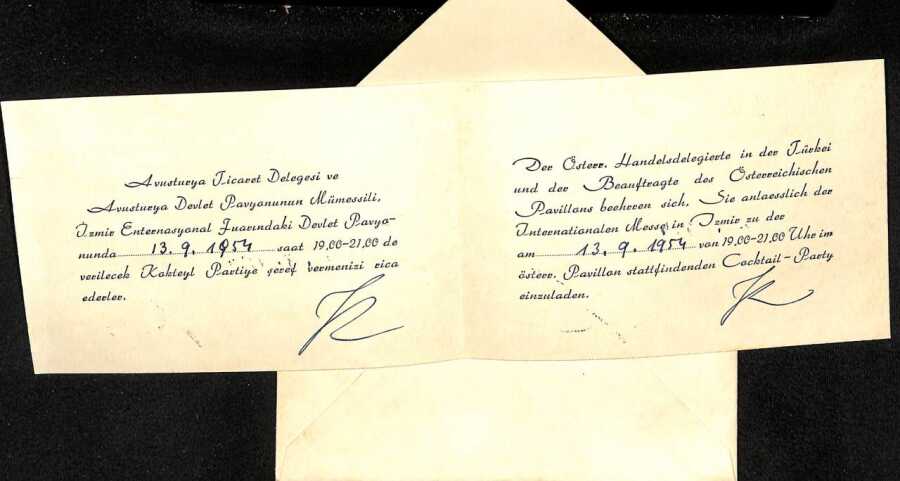 Avusturya Ticaret Delegesi ve
Avusturya Devlet Pavyonunun Mümessili,
İzmir Enternasyonal Fuarındaki Devlet Pavyo-
nunda 13.9.1954 saat 19,00-21,00 de
verilecek Kokteyl Partiye şeref vermenizi rica
ederler.
Der Österr. Handelsdelegierte in der Türkei
und der Beauftragte des Österreichischen
Pavillons beehren sich, Sie anlaesslich der
Internationalen Messe in Izmir zu der
am 13.9.1954 von 19,00-21,00 Uhr im
österr. Pavillon stattfindenden Cocktail-Party
einzuladen.